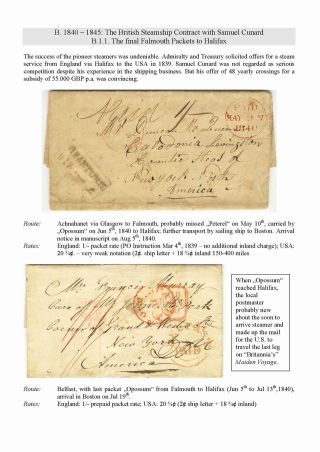 B. 1840 – 1845: The British Steamship Contract with Samuel Cunard
B.1.1. The final Falmouth Packets to Halifax
The success of the pioneer steamers was undeniable. Admiralty and Treasury solicited offers for a steam
service from England via Halifax to the USA in 1839. Samuel Cunard was not regarded as serious
competition despite his experience in the shipping business. But his offer of 48 yearly crossings for a
subsidy of 55.000 GBP p.a. was convincing.
Mr Duncan
Caledonia Livingston
Head of
New York
America
Route: Achnahanet via Glasgow to Falmouth, probably missed „Peterel“ on May 10th, carried by
„Opossum“ on Jun 5th, 1840 to Halifax; further transport by sailing ship to Boston. Arrival
notice in manuscript on Aug 5th, 1840.
Rates: England: 1/- packet rate (PO Instruction Mar 4th, 1839 – no additional inland charge); USA:
20 ¾¢ – very weak notation (2¢ ship letter + 18 ¾¢ inland 150-400 miles
Mr Francis Murray
Care of
Corner of Grand &
New York
America
PAID
When „Opossum“
reached Halifax,
the local
postmaster
probably new
about the soon to
arrive steamer and
made up the mail
for the U.S. to
travel the last leg
on “Britannia’s”
Maiden Voyage.
Route: Belfast, with last packet „Opossum“ from Falmouth to Halifax (Jun 5th to Jul 13th,1840),
arrival in Boston on Jul 19th.
Rates: England: 1/- prepaid packet rate; USA: 20 ¾¢ (2¢ ship letter + 18 ¾¢ inland)